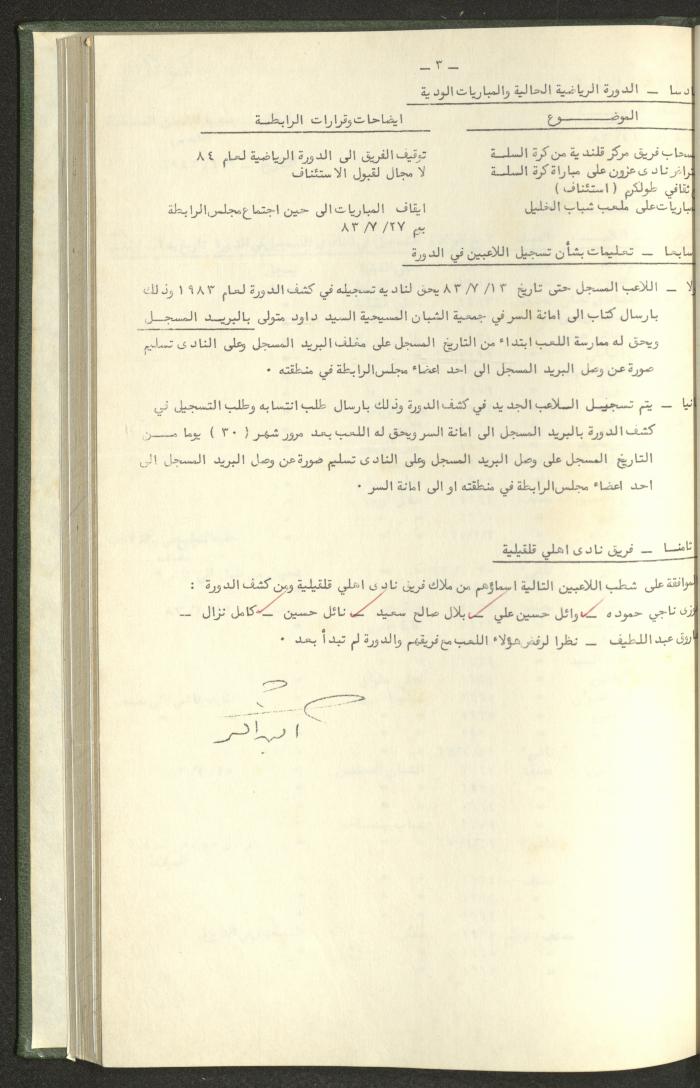 — ٣ —
ادسا — الدورة الرياضية الحالية والمباريات الودية
الموضـــــــوع ايضاحات وقرارات الرابطـة
سحاب فريق مركز قلندية من كرة السلـة توقيف الفريق الى الدورة الرياضية لعام ٨٤
نادى عزون على مباراة كرة السلـة لا مجال لقبول الاستئناف
ثقافي طولكرم (استئناف)
مباريات على ملعب شباب الخليل ايقاف المباريات الى حين اجتماع مجلس الرابطة
بيم ٨٣/٧/٢٧
سابعا — تعليمات بشأن تسجيل اللاعبين في الدورة
ولا — اللاعب المسجل حتى تاريخ ٨٣/٧/١٣ يحق لناديه تسجيله في كشف الدورة لعام ١٩٨٣ وذلك
بارسال كتاب الى امانة السر في جمعية الشبان المسيحية السيد داود متولى بالبريـد المسجـل
ويحق له ممارسة اللعب ابتداء من التاريخ المسجل على مغلف البريد المسجل وعلى النادى تسليم
صورة عن وصل البريد المسجل الى احد اعضاء مجلس الرابطة في منطقته .
انيا — يتم تسجيـل السلاعب الجديد في كشف الدورة وذلك بارسال طلب انتسابه وطلب التسجيل في
كشف الدورة بالبريد المسجل الى امانة السر ويحق له اللعب بعد مرور شهر ( ٣٠ ) يوما مـــن
التاريخ المسجل على وصل البريد المسجل وعلى النادى تسليم صورة عن وصل البريد المسجل الى
احد اعضاء مجلس الرابطة في منطقته او الى امانة السر .
ثامنـا — فريق نادى اهلي قلقيلية
لموافقة على شطب اللاعبين التالية اسماؤهم من ملاك فريق نادى اهلي قلقيلية ومن كشف الدورة :
وزى ناجي حموده — وائل حسين علي — بلال صالح سعيد — نائل حسين — كامل نزال —
اروق عبد اللطيف — نظرا لرفض هؤلاء اللعب مع فريقهم والدورة لم تبدأ بعد .